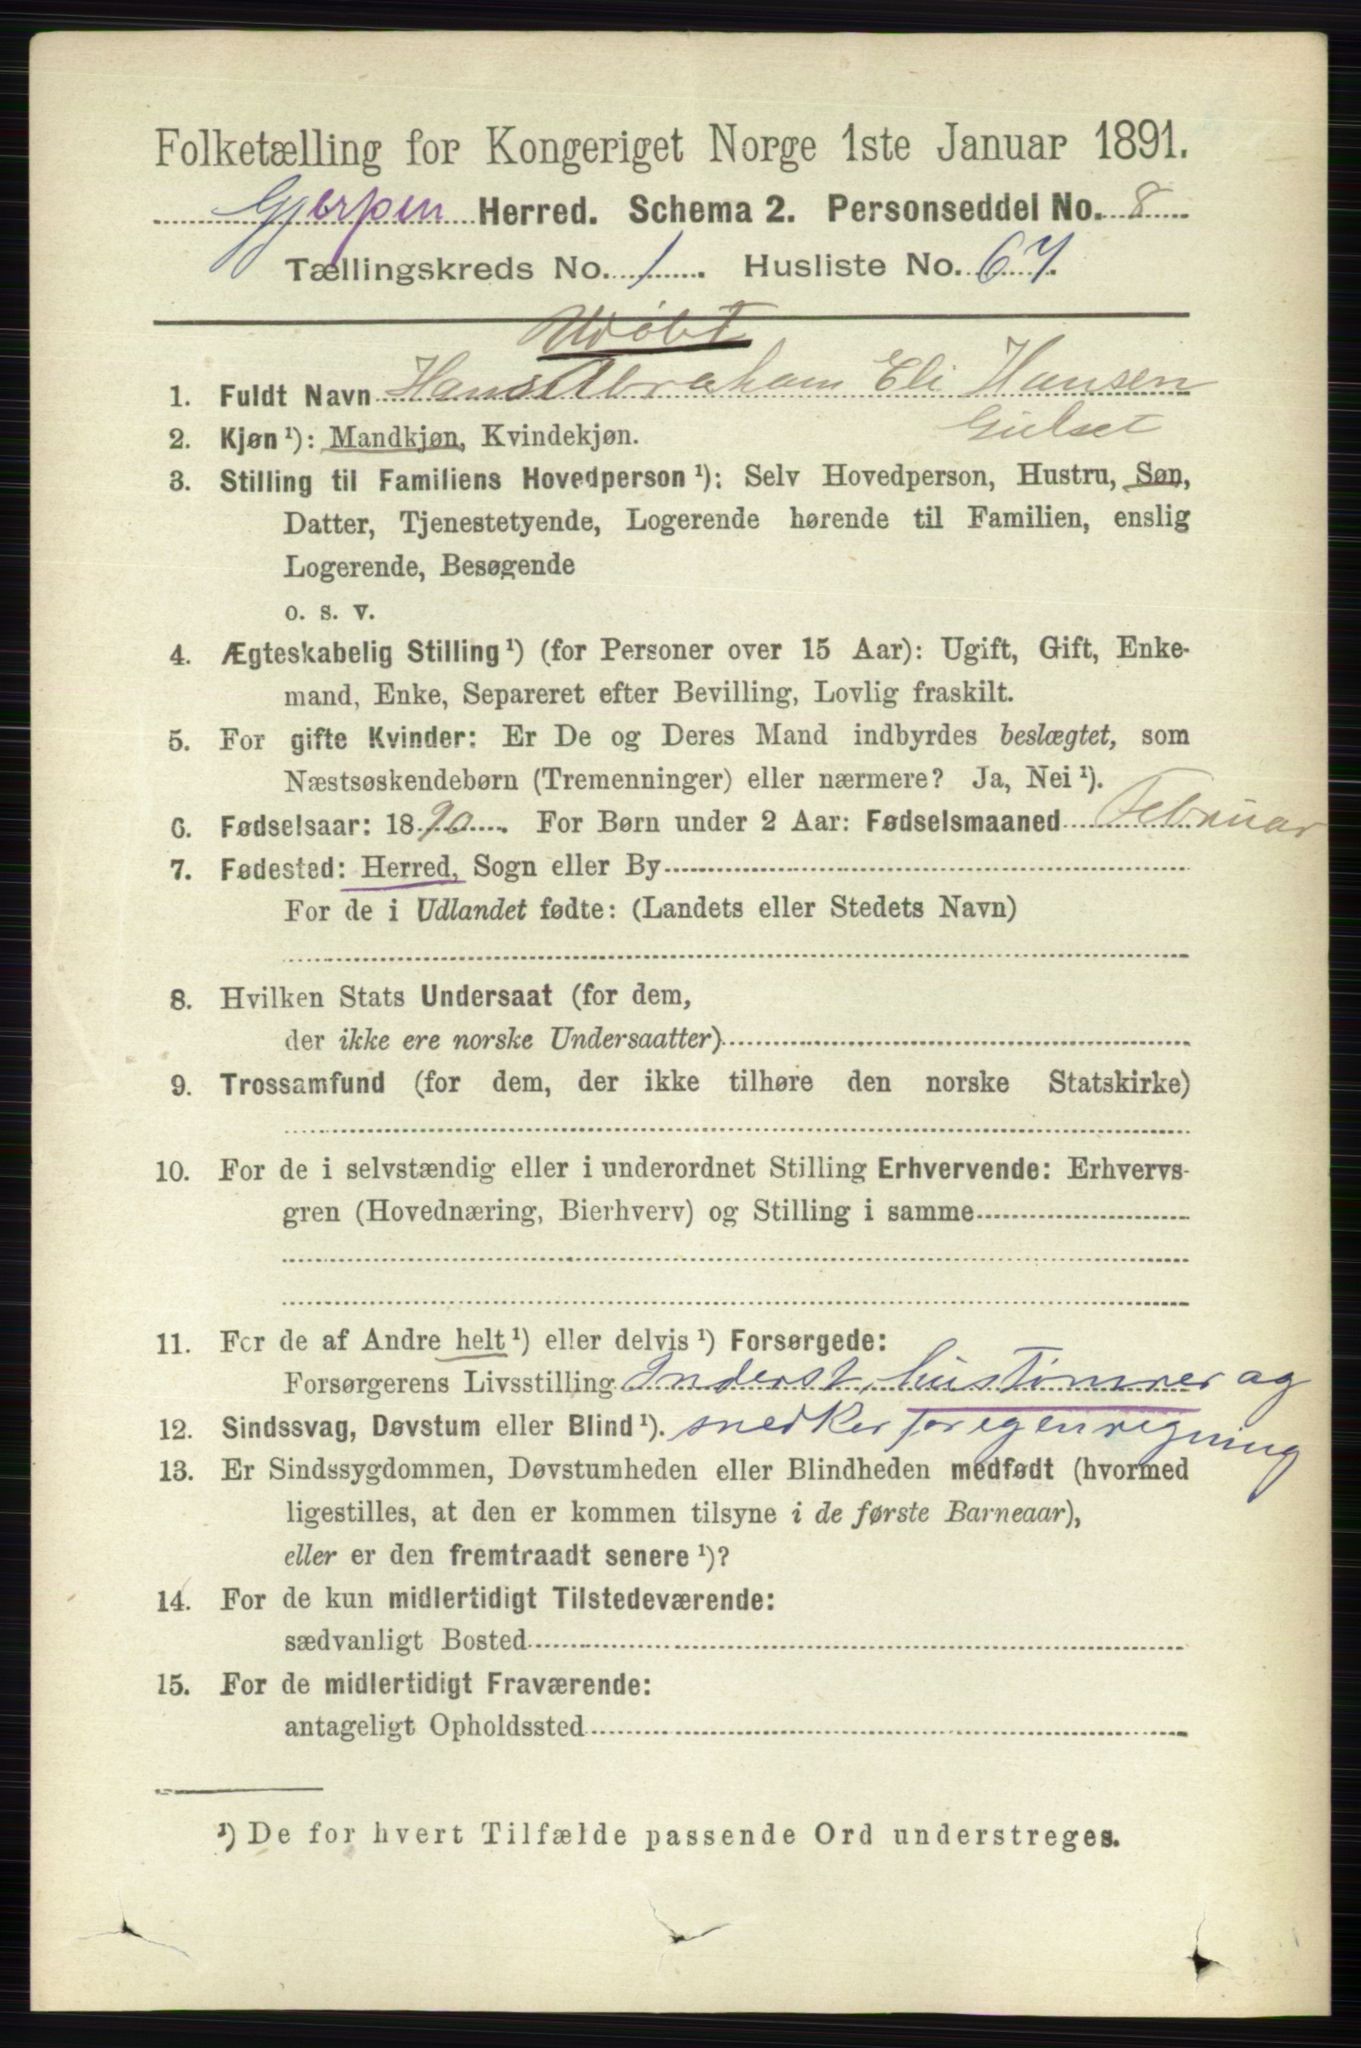 Folketælling for Kongeriget Norge 1ste Januar 1891.
Gjerpen Herred. Schema 2. Personseddel No. 8
Tællingskreds No. 1. Husliste No. 67.
Udøbt
1. Fuldt Navn Hans Abraham Eli Hansen
Gulset
2. Kjøn¹): Mandkjøn, Kvindekjøn.
3. Stilling til Familiens Hovedperson¹): Selv Hovedperson, Hustru, Søn,
Datter, Tjenestetyende, Logerende hørende til Familien, enslig
Logerende, Besøgende
o. s. v.
4. Ægteskabelig Stilling¹) (for Personer over 15 Aar): Ugift, Gift, Enke-
mand, Enke, Separeret efter Bevilling, Lovlig fraskilt.
5. For gifte Kvinder: Er De og Deres Mand indbyrdes beslægtet, som
Næstsøskendebørn (Tremenninger) eller nærmere? Ja, Nei¹).
6. Fødselsaar: 1890. For Børn under 2 Aar: Fødselsmaaned Februar
7. Fødested: Herred, Sogn eller By
For de i Udlandet fødte: (Landets eller Stedets Navn)
8. Hvilken Stats Undersaat (for dem,
der ikke ere norske Undersaatter)
9. Trossamfund (for dem, der ikke tilhøre den norske Statskirke)
10. For de i selvstændig eller i underordnet Stilling Erhvervende: Erhvervs-
gren (Hovednæring, Bierhverv) og Stilling i samme
11. For de af Andre helt¹) eller delvis¹) Forsørgede:
Forsørgerens Livsstilling Inderst, hustømrer og
12. Sindssvag, Døvstum eller Blind¹). snedker for egen regning
13. Er Sindssygdommen, Døvstumheden eller Blindheden medfødt (hvormed
ligestilles, at den er kommen tilsyne i de første Barneaar),
eller er den fremtraadt senere¹)?
14. For de kun midlertidigt Tilstedeværende:
sædvanligt Bosted
15. For de midlertidigt Fraværende:
antageligt Opholdssted
¹) De for hvert Tilfælde passende Ord understreges.